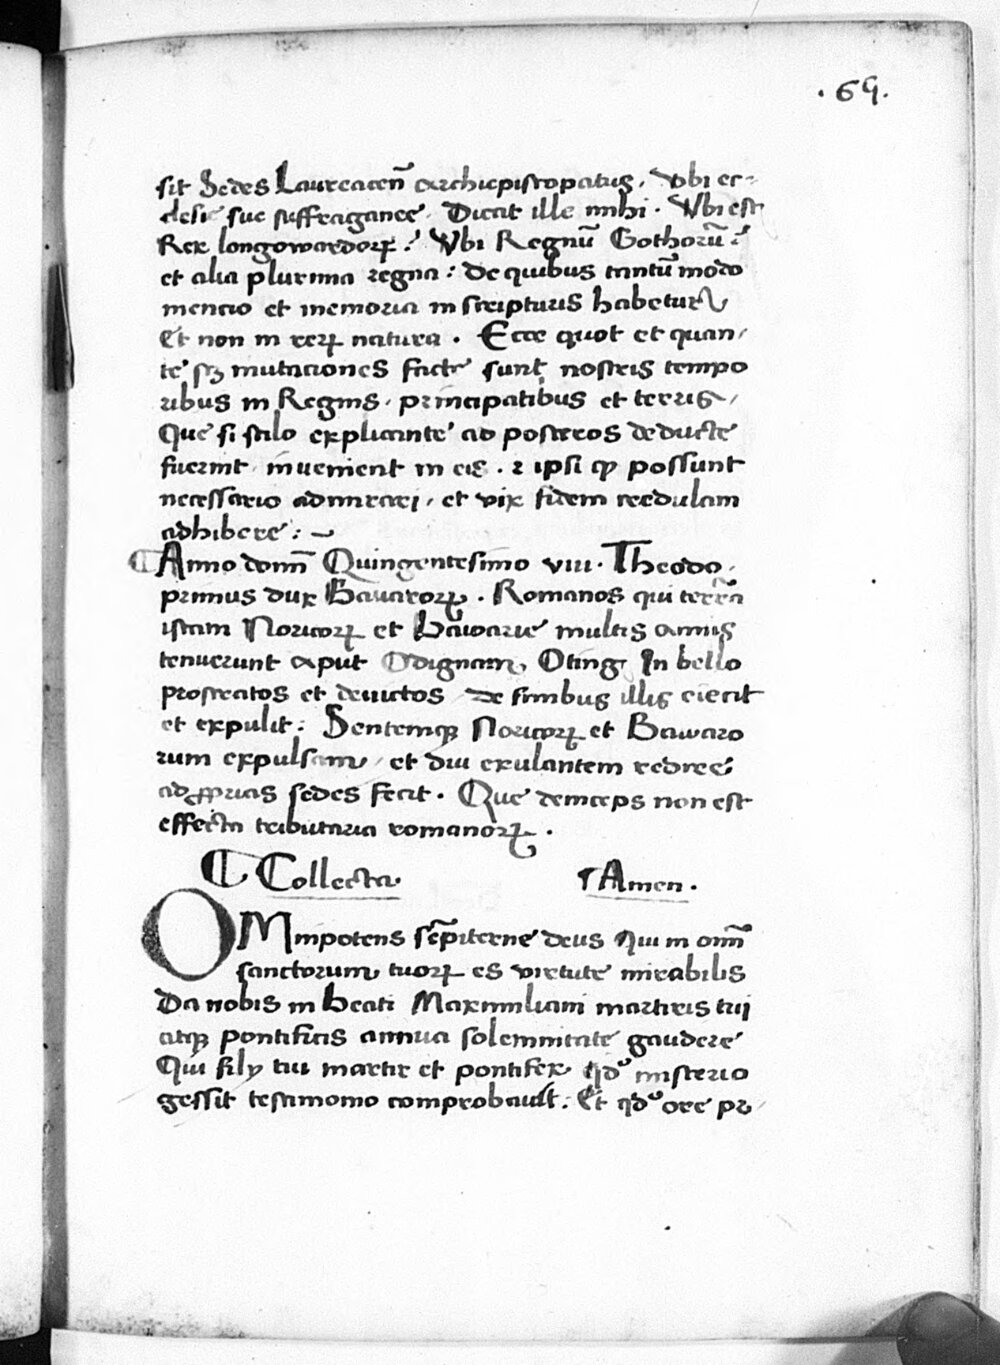 .69.
sit Sedes Laureaceñ archiepiscopatus. Vbi ec-
clesie sue suffraganee. Dicat ille mihi. Vbi est
Rex longowardoꝝ? Vbi Regnū Gothorū?
et alia plurima regna: de quibus tantū modo
mencio et memoria in scripturis habetur
Et non in reꝝ natura. Ecce quot et quan-
te sꝫ mutaciones facte sunt nostris tempo
ribus in Regnis, principatibus et terris,
Que si stilo explicante ad posteros deducte
fuerint, invenient in eis. ⁊ ipsi ꝙ possunt
necessario admirari, et vix fidem credulam
adhibere: ~
¶ Anno domī Quingentesimo viii. Theodo.
primus dux Bavaroꝝ. Romanos qui terrā
istam Noricoꝝ et Bawarie multis annis
tenuerunt aput Odignam, Oting, In bello
prostratos et devictos, de finibus illis eiecit
et expulit: Gentemqꝫ Noricoꝝ et Bawaro
rum expulsam, et diu exulantem redire
ad ꝓprias sedes fecit. Que deinceps non est
effecta tributaria romanoꝝ.
¶ Collecta Amen.
OMnipotens sēpiterne deus Qui in omī
sanctorum tuoꝝ es virtute mirabilis
Da nobis in beati Maximiliani martiris tui
atqꝫ pontificis annua solemnitate gaudere
Qui filÿ tui martir et pontifex qd' misterio
gessit testimonio comprobavit. Et qd' ore pr